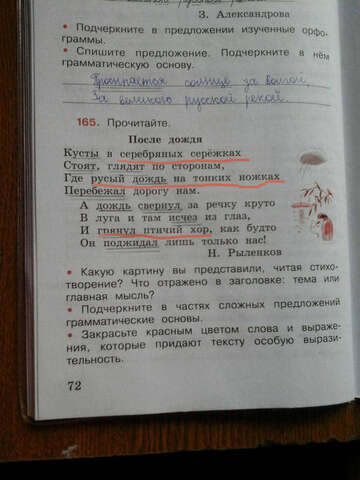 З. Александрова
• Подчеркните в предложении изученные орфо-
граммы.
• Спишите предложение. Подчеркните в нём
грамматическую основу.
солнце за
За великой русской рекой.
165. Прочитайте.
После дождя
Кусты в серебряных серёжках
Стоят, глядят по сторонам,
Где русый дождь на тонких ножках
Перебежал дорогу нам.
А дождь свернул за речку круто
В луга и там исчез из глаз,
И грянул птичий хор, как будто
Он поджидал лишь только нас!
Н. Рыленков
• Какую картину вы представили, читая стихо-
творение? Что отражено в заголовке: тема или
главная мысль?
• Подчеркните в частях сложных предложений
грамматические основы.
• Закрасьте красным цветом слова и выраже-
ния, которые придают тексту особую вырази-
тельность.
72